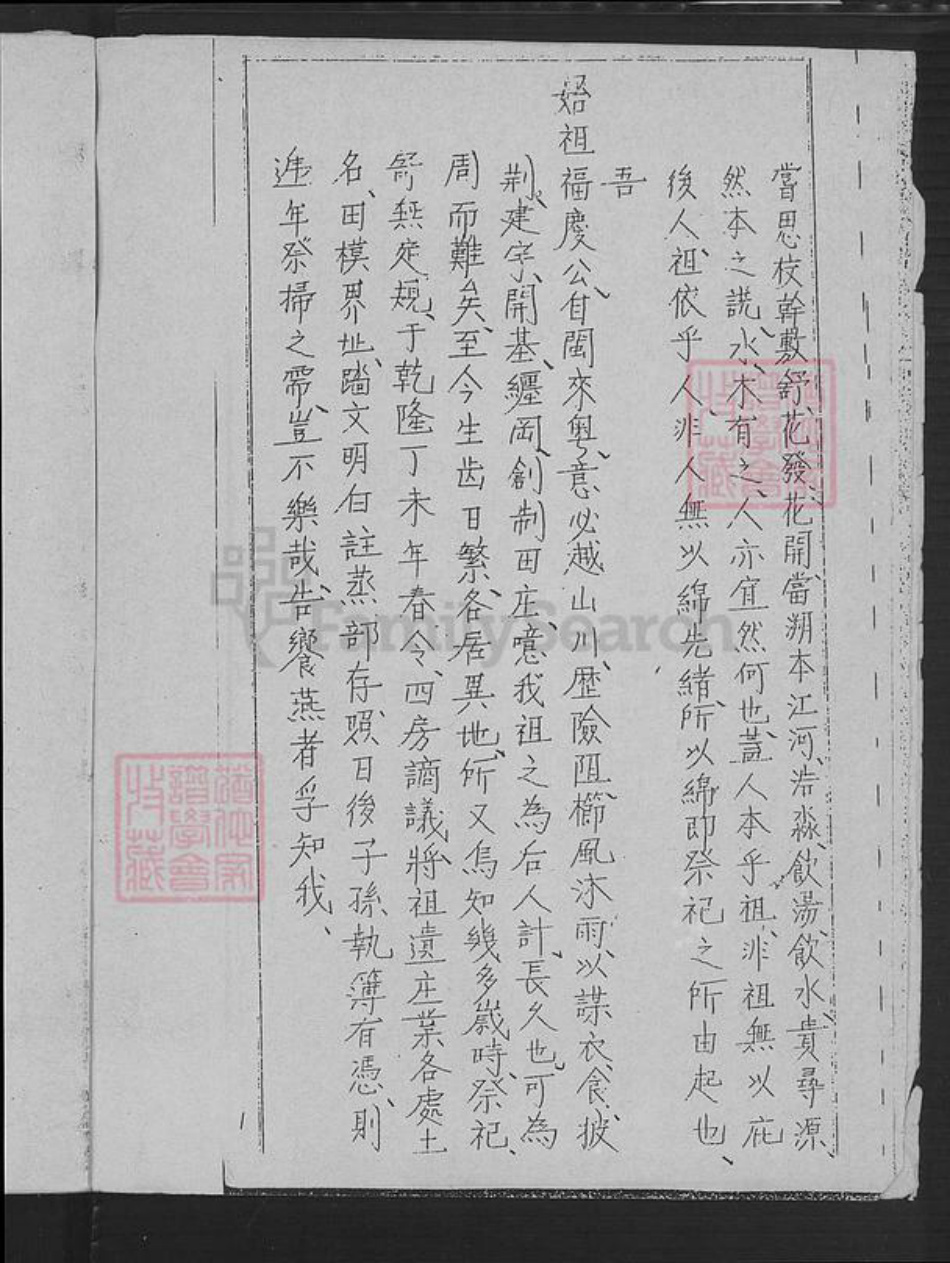 嘗思枝幹敷舒、花發花開、當朔本江河、浩淼、飲湯飲水貴尋源、
然本之說、水、木有之、人亦宜然何也、蓋人本乎祖、非祖無以庇
後人、祖依乎人、非人無以綿先緒、所以綿即祭祀之所由起也、
吾
始祖福慶公、自閩來粵、意必越山川、歷險阻、櫛風沐雨、以謀衣食、披
荆、建宇、開基、纏岡、創制田庄、噫我祖之為后人計、長久也。可為
周而難矣、至今生齿日繁、各居異地、所又烏知幾多歲時、祭祀、
舒無定規、于乾隆丁未年春令、四房謫議、將祖遺庄業各處土
名、田模界址、踏文明白註蒸部存照、日後子孫、執簿有憑、則
逓年祭掃之需、豈不樂哉、告饗燕者孚知我、
1
FamilySearch